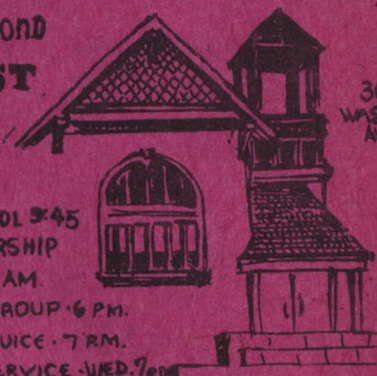 OND
ST
30
WAS
A
OL 9:45
RSHIP
AM.
ROUP · 6 PM.
VICE · 7 P.M.
ERVICE · WED. 7PM